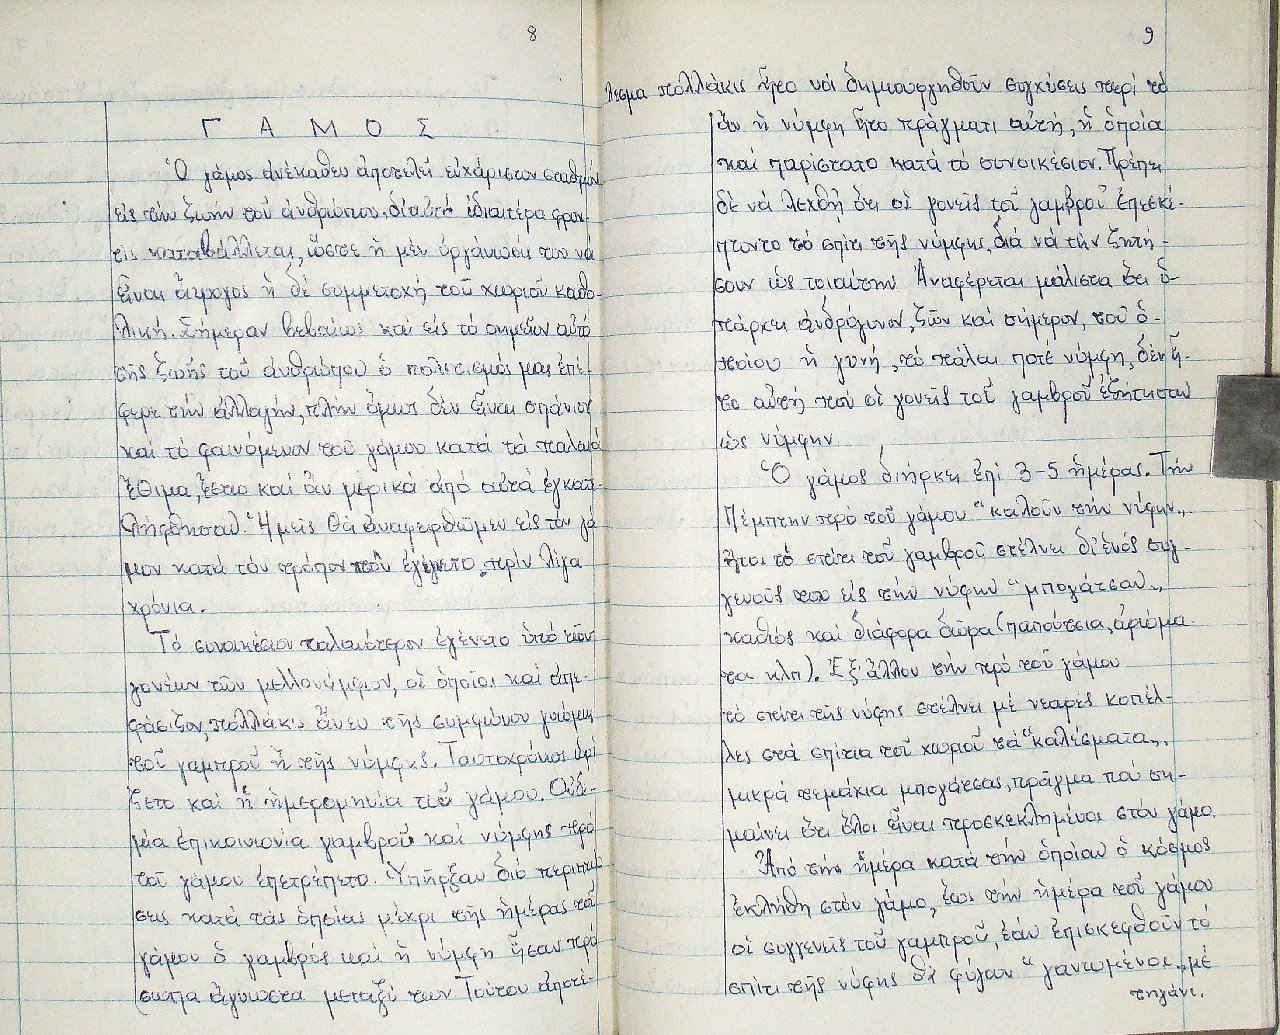 8
Γ Α Μ Ο Σ
Ὁ γάμος ἀνέκαθεν ἀποτελεῖ εὐχάριστον σταθμόν
εἰς τὴν ζωήν τοῦ ἀνθρώπου, δι' αὐτό ἰδιαιτέρα φρον-
τίς καταβάλλεται, ὥστε ἡ μέν ὀργάνωσίς του νά
εἶναι ἄψογος ἡ δέ συμμετοχή τοῦ χωριοῦ καθο-
λική. Σήμερον βεβαίως καί εἰς τό σημεῖον αὐτό
τῆς ζωῆς τοῦ ἀνθρώπου ὁ πολιτισμός μας ἐπέ-
φερε τήν ἀλλαγήν, πλήν ὅμως δέν εἶναι σπάνιον
καί τό φαινόμενον τοῦ γάμου κατά τά παλαιά
ἔθιμα, ἔστω καί ἄν μερικά ἀπό αὐτά ἐγκατε-
λήφθησαν. Ἡμεῖς θά ἀναφερθῶμεν εἰς τόν γά
μον κατά τόν τρόπον πού ἐγίγνετο πρίν λίγα
χρόνια.
Τό συνοικέσιον παλαιότερον ἐγένετο ὑπό τῶν
γονέων τῶν μελλονύμφων, οἱ ὁποῖοι καί ἀπε-
φάσιζον πολλάκις ἄνευ τῆς συμφώνου γνώμης
τοῦ γαμπροῦ ἤ τῆς νύμφης. Ταυτοχρόνως ὡρί
ζετο καί ἡ ἡμερομηνία τοῦ γάμου. Οὐδε-
μία ἐπικοινωνία γαμβροῦ καί νύμφης πρό
τοῦ γάμου ἐπετρέπετο. Ὑπῆρξαν διό περιπτώ
σεις κατά τάς ὁποίας μέχρι τῆς ἡμέρας τοῦ
γάμου ὁ γαμβρός καί ἡ νύμφη ἦσαν πρό
σωπα ἄγνωστα μεταξύ των Τούτου ἀποτέ-
9
λεσμα πολλάκις ἦτο νά δημιουργηθοῦν συγχύσεις περί τό
ἄν ἡ νύμφη ἦτο πράγματι αὐτή, ἡ ὁποία
καί παρίστατο κατά τό συνοικέσιον. Πρέπει
δέ νά λεχθῆ ὅτι οἱ γονεῖς τοῦ γαμβροῦ ἐπεσκέ-
πτοντο τό σπίτι τῆς νύμφης, διά νά τήν ζητή-
σουν ὡς τοιαύτην Ἀναφέρεται μάλιστα ὅτι ὑ-
πάρχει ἀνδρόγυνον, ζῶν καί σήμερον, τοῦ ὁ-
ποίου ἡ γυνή, τό πάλαι ποτέ νύμφη, δέν ἦ-
το αὐτή πού οἱ γονεῖς τοῦ γαμβροῦ ἐζήτησαν
ὡς νύμφην
Ὁ γάμος διήρκει ἐπί 3-5 ἡμέρας. Τήν
Πέμπτην πρό τοῦ γάμου "καλοῦν τήν νύφην",
ἤτοι τό σπίτι τοῦ γαμβροῦ στέλνει δι' ἑνός συγ-
γενοῦς του εἰς τήν νύφην "μπογάτσαν",
καθώς καί διάφορα δῶρα (παπούτσια, ἀρώμα-
τα κλπ). Ἐξ ἄλλου τήν πρό τοῦ γάμου
τό σπίτι τῆς νύφης στέλνει μέ νεαρές κοπέλ-
λες στά σπίτια τοῦ χωριοῦ τά "καλέσματα",
μικρά τεμάχια μπογάτσας, πρᾶγμα πού ση-
μαίνει ὅτι ὅλοι εἶναι προσκεκλημένοι στόν γάμο.
Ἀπό τήν ἡμέρα κατά τήν ὁποίαν ὁ κόσμος
ἐκλήθη στόν γάμο, ἕως τήν ἡμέρα τοῦ γάμου
οἱ συγγενεῖς τοῦ γαμπροῦ, ἐάν ἐπισκεφθοῦν τό
σπίτι τῆς νύφης θά φύγουν "γανωμένοι" μέ
τηγάνι.